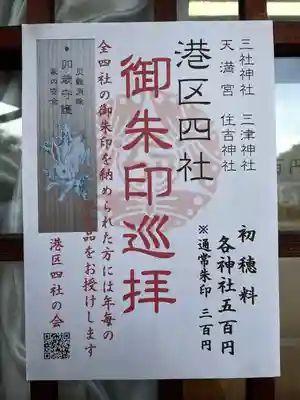 三社神社　三津神社
天満宮　住吉神社
港区四社
御朱印巡拝
初穂料
各神社五百円
※通常朱印　三百円
卯歳守護
災難消除
家内安全
全四社の御朱印を納められた方には年毎の
品をお授けします
港区四社の会